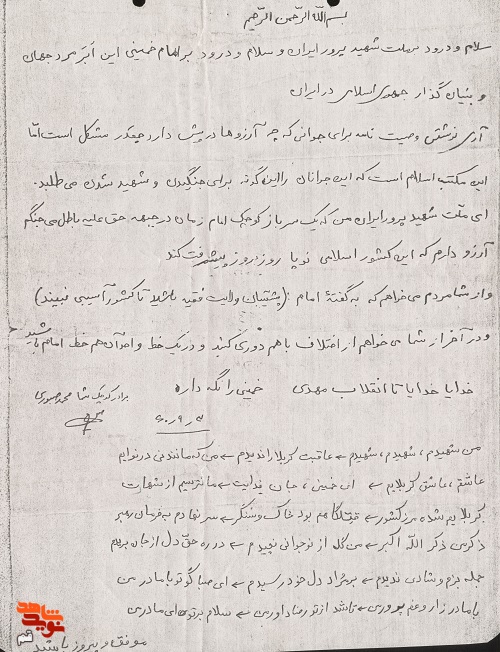 بسم اللّه الرّحمن الرّحیم
سلام و درود بر ملت شهید پرور ایران و سلام و درود بر امام خمینی این اَبَر مرد جهان
و بنیان گذار جمهوری اسلامی در ایران
آری نوشتن وصیت نامه برای جوانی که چه آرزوها در پیش دارد چقدر مشکل است امّا
این مکتب اسلام است که این جوانان را اینگونه برای جنگیدن و شهید شدن می طلبد.
ای ملّت شهید پرور ایران من که یک سرباز کوچک امام زمان در جبهه حق علیه باطل می جنگم
آرزو دارم که این کشور اسلامی نوپا روز بروز پیشرفت کند
و از شما مردم می خواهم که به گفتهٔ امام : (پشتیبان ولایت فقیه باشید تا کشور آسیبی نبیند)
و در آخر از شما می خواهم از اختلاف با هم دوری کنید و در یک خط واحد آن هم خط امام باشید
خدایا خدایا تا انقلاب مهدی خمینی را نگه داره
برادر کوچک شما محمد صبوری
من شهیدم ، شهیدم ، شهیدم عاقبت کربلا را ندیدم من که مانند نی در نوایم
عاشق ، عاشق کربلایم ای خمینی ، جان فدایت ما نترسیم از شهادت
کربلایم شده مرز کشور قتلگاهم بود خاک و سنگر سر نهادم به فرمان رهبر
ذکر من ذکر اللّه اکبر من گل از نوجوانی نچیدم در ره حق دل از جان بریدم
حجله بزم و شادی ندیدم بر مراد دل خود رسیدم ای صبا گو تو با مادر من
با مادر زار و غم پرور من باشد از تو رضا داور من سلام بر تو ای مادر من
موفق و پیروز باشید
نوید شاهد
قم